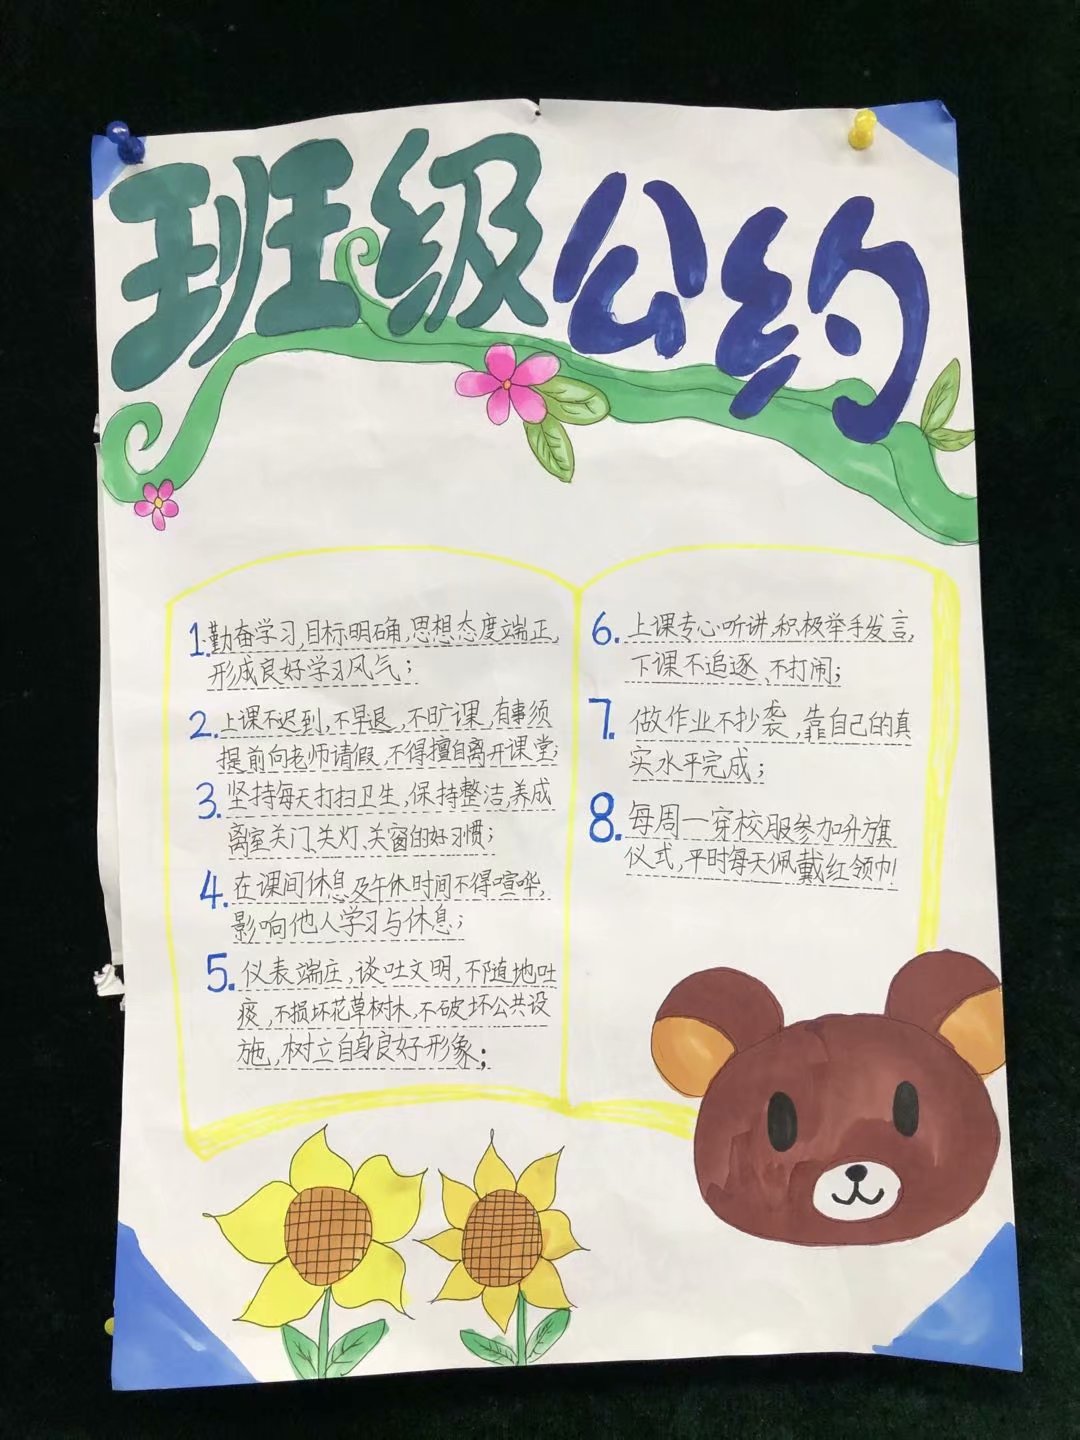 班级公约
1.勤奋学习,目标明确,思想态度端正,
形成良好学习风气;
2.上课不迟到,不早退,不旷课,有事须
提前向老师请假,不得擅自离开课堂;
3.坚持每天打扫卫生,保持整洁,养成
离室关门、关灯、关窗的好习惯;
4.在课间休息及午休时间不得喧哗,
影响他人学习与休息;
5.仪表端庄,谈吐文明,不随地吐
痰,不损坏花草树木,不破坏公共设
施,树立自身良好形象;
6.上课专心听讲,积极举手发言,
下课不追逐、不打闹;
7.做作业不抄袭,靠自己的真
实水平完成;
8.每周一穿校服参加升旗
仪式,平时每天佩戴红领巾!